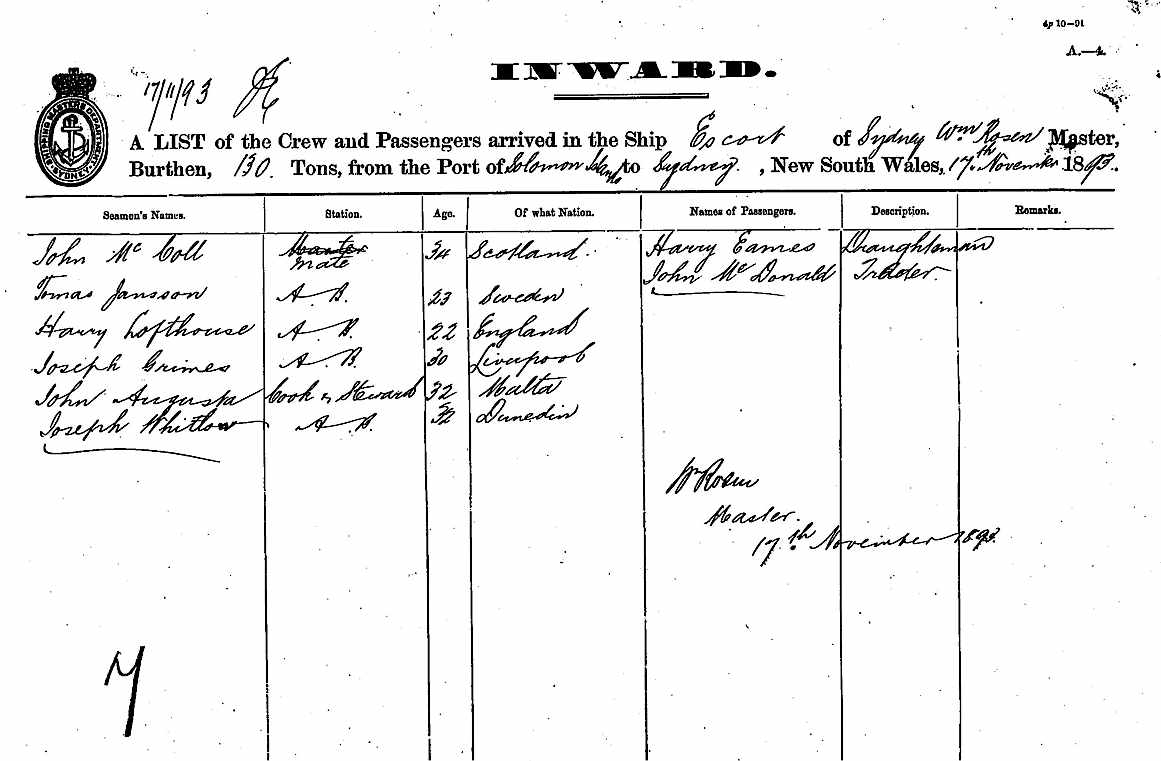 4p 10—91
A.—4.
INWARD.
17/11/93
SHIPPING MASTER'S DEPARTMENT SYDNEY
A LIST of the Crew and Passengers arrived in the Ship Escort of Sydney Wm Rosen Master,
Burthen, 130 Tons, from the Port of Solomon Islands to Sydney. , New South Wales, 17th November 1893.
Seamen's Names. Station. Age. Of what Nation. Names of Passengers. Description. Remarks.
John Mc Coll Master mate 34 Scotland. Harry Eames Draughtsman
John Mc Donald Trader.
Tomas Jansson A.B. 23 Sweden
Harry Lofthouse A.B. 22 England
Joseph Grimes A.B. 30 Liverpool
John Augusta Cook & Steward 32 Malta
Joseph Whitlow A.B. 32 Dunedin
Wm Rosen
Master.
17th November 1893.
7